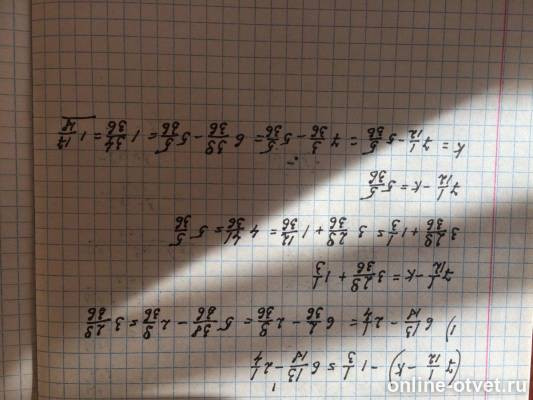 (7 1/12 − k) − 1 1/3 = 6 13/18 − 2 1/4
1) 6 13/18 − 2 1/4 = 6 2/36 − 2 9/36 = 5 38/36 − 2 9/36 = 3 29/36
7 1/12 − k = 3 29/36 + 1 1/3
3 29/36 + 1 1/3 = 3 29/36 + 1 12/36 = 4 41/36 = 5 5/36
7 1/12 − k = 5 5/36
k = 7 1/12 − 5 5/36 = 7 3/36 − 5 5/36 = 6 39/36 − 5 5/36 = 1 34/36 = 1 17/18
online-otvet.ru